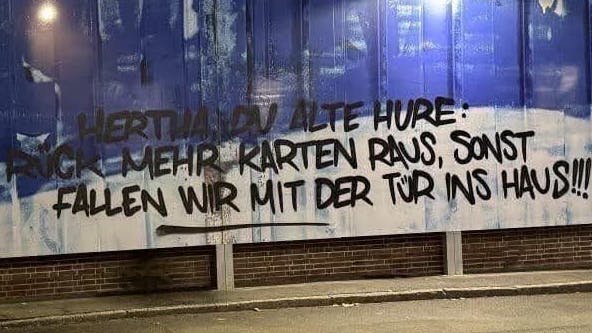 HERTHA, DU ALTE HURE:
RÜCK MEHR KARTEN RAUS, SONST
FALLEN WIR MIT DER TÜR INS HAUS!!!